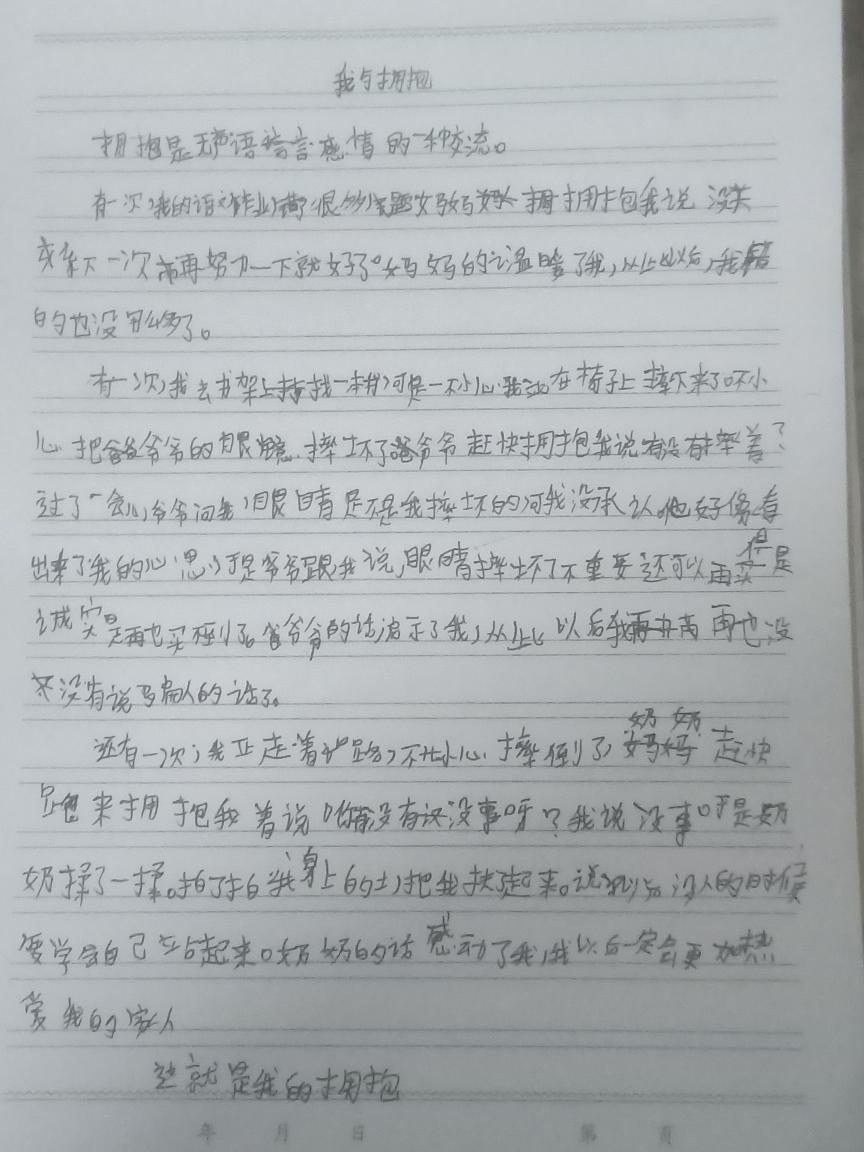 我与拥抱
拥抱是无声语言感情的一种交流。
有一次，我的语文作业错了很多题妈妈拥抱我说没关
系下一次再努力一下就好了。妈妈的话温暖了我，从此以后，我错
的也没那么多了。
有一次，我去书架上找一本书，可是一不小心我在椅子上摔下来了。不小
心把爷爷的眼镜摔坏了爷爷赶快拥抱我说有没有摔着？
过了一会儿，爷爷问我，眼睛是不是我摔坏的可我没承认他好像看
出来了我的心思，于是爷爷跟我说，眼睛摔坏了不重要还可以再买但是
诚实是再也买不到了。爷爷的话启示了我，从此以后我再也没
没有说骗人的话了。
还有一次，我正走着路，不小心摔倒了，奶奶赶快
跑来拥抱我着说，你有没有没事呀？我说没事于是奶
奶揉了一揉。拍了拍我身上的土，把我扶了起来。说，以后没人的时候
要学会自己站起来。奶奶的话感动了我，我以后一定会更加热
爱我的家人
这就是我的拥抱
年 月 日 第 页